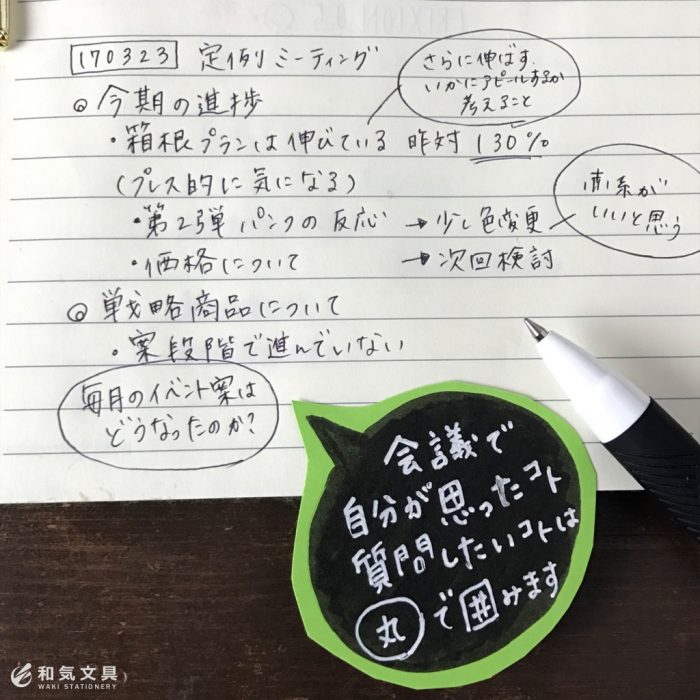 170323 定例ミーティング
◎今期の進捗
さらに伸ばす。
いかにアピールするか
考えること
・箱根プランは伸びている 昨対 130%
(プレス的に気になる)
・第2弾パンクの反応 → 少し色変更
・価格について → 次回検討
系が
いいと思う
◎戦略商品について
・案段階で進んでいない
毎月のイベント案は
どうなったのか?
会議で
自分が思ったコト
質問したいコトは
丸で囲みます
和気文具
WAKI STATIONERY